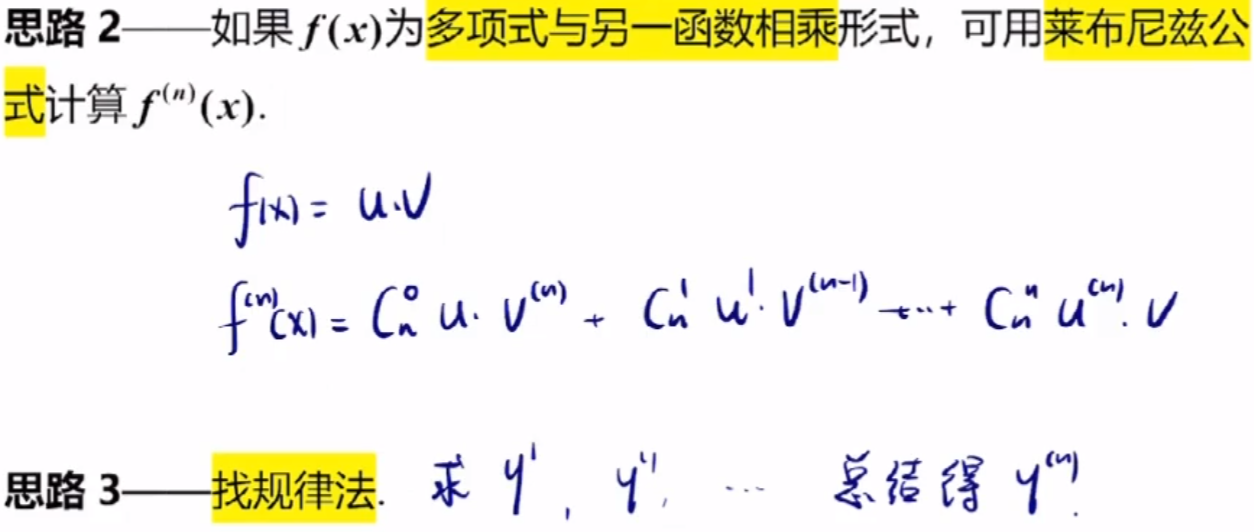 思路 2——如果 f(x)为多项式与另一函数相乘形式，可用莱布尼兹公
式计算 f⁽ⁿ⁾(x).
f(x) = u·v
f⁽ⁿ⁾(x) = Cₙ⁰ u· v⁽ⁿ⁾ + Cₙ¹ u'· v⁽ⁿ⁻¹⁾ +···+ Cₙⁿ u⁽ⁿ⁾· v
思路 3——找规律法. 求 y', y'', ··· 总结得 y⁽ⁿ⁾.